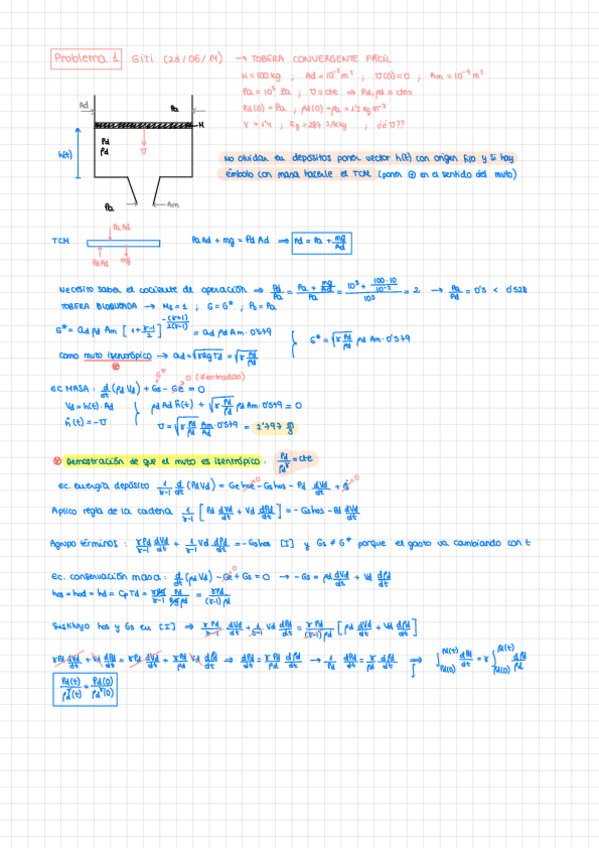 Problema 1 GITI (21/06/14) → TOBERA CONVERGENTE FÁCIL
M=100 kg ; Ad = 10⁻² m² ; v(0)=0 ; Am = 10⁻⁴ m²
Pa = 10⁵ Pa ; v = cte ⇒ Pd, ρd = ctes
Pd(0) = Pa ; ρd(0) = ρa = 1'2 kg m⁻³
γ = 1'4 ; Rg = 287 J/kgK ; ¿¿v??
Ad
Pa
M
Pd
ρd
v
h(t)
Pa
Am
No olvidar en depósitos poner vector h(t) con origen fijo y si hay
émbolo con masa hacerle el TCM (poner ⊕ en el sentido del mvto)
TCM
Pa Ad
Pd Ad
mg
Pa Ad + mg = Pd Ad ⇒ Pd = Pa + mg/Ad
Necesito saber el cociente de operación ⇒ Pd/Pa = (Pa + mg/Ad)/Pa = (10⁵ + 100·10/10⁻²)/10⁵ = 2 → Pa/Pd = 0'5 < 0'528
TOBERA BLOQUEADA → Ms = 1 ; G = G* ; Ps = Pa
G* = ad ρd Am [1 + (γ-1)/2]^(-(γ+1)/2(γ-1)) = ad ρd Am · 0'579
Como mvto isentrópico → ad = √(γRgTd) = √(γ Pd/ρd)
G* = √(γ Pd/ρd) ρd Am · 0'579
EC MASA : d/dt (ρd Vd) + Gs - Ge = 0
G*
0 (∄entradas)
Vd = h(t) · Ad
ḣ(t) = -v
ρd Ad ḣ(t) + √(γ Pd/ρd) ρd Am · 0'579 = 0
v = √(γ Pd/ρd) Am/Ad · 0'579 = 2'797 m/s
⊛ Demostración de que el mvto es isentrópico : Pd/ρd^γ = cte
EC. energía depósito 1/(γ-1) d/dt (Pd Vd) = Ge hoe - Gs hos - Pd dVd/dt + Q̇
Aplico regla de la cadena 1/(γ-1) [Pd dVd/dt + Vd dPd/dt] = -Gs hos - Pd dVd/dt
Agrupo términos : γPd/(γ-1) dVd/dt + 1/(γ-1) Vd dPd/dt = -Gs hos [I] y Gs ≠ G* porque el gasto va cambiando con t
EC. conservación masa : d/dt (ρd Vd) - Ge + Gs = 0 → -Gs = ρd dVd/dt + Vd dρd/dt
hos = hod = hd = Cp Td = γRg/(γ-1) Pd/(Rg ρd) = γPd/((γ-1) ρd)
Sustituyo hos y Gs en [I] ⇒ γPd/(γ-1) dVd/dt + 1/(γ-1) Vd dPd/dt = γPd/((γ-1)ρd) [ρd dVd/dt + Vd dρd/dt]
γPd dVd/dt + Vd dPd/dt = γPd dVd/dt + γPd/ρd Vd dρd/dt ⇒ dPd/dt = γPd/ρd dρd/dt → 1/Pd dPd/dt = γ/ρd dρd/dt ⇒ ∫_{Pd(0)}^{Pd(t)} dPd/Pd = γ ∫_{ρd(0)}^{ρd(t)} dρd/ρd
Pd(t)/ρd^γ(t) = Pd(0)/ρd^γ(0)